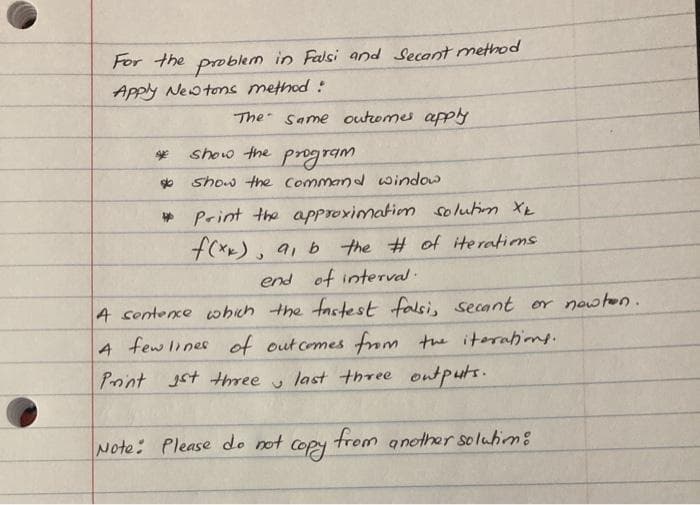 For the problem in Falsi and Secant method
Apply Newtons method :
The same outcomes apply
* show the program
* show the command window
* Print the approximation solution xk
f(xk), a, b the # of iterations
end of interval.
A sentence which the fastest falsi, secant or newton.
A few lines of outcomes from the iterations.
Print 1st three, last three outputs.
Note: Please do not copy from another solution: